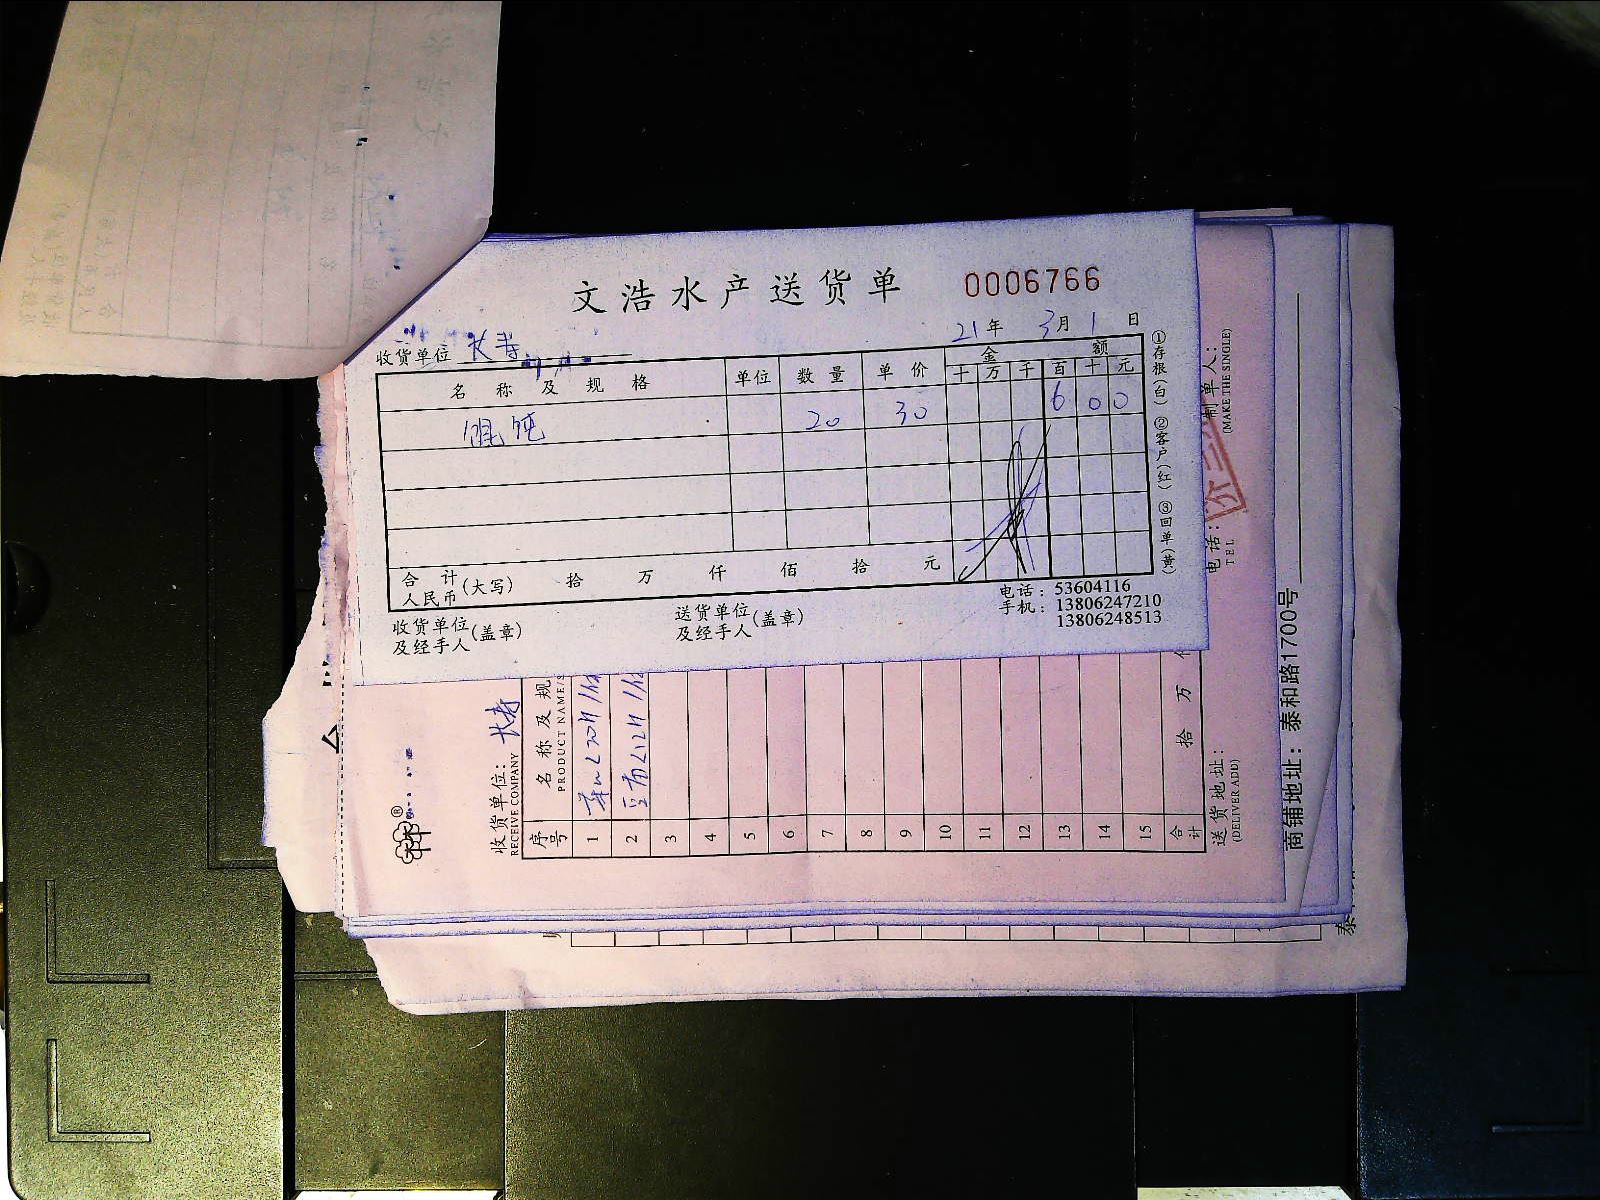 文浩水产送货单 0006766
21年 3月 1日
收货单位 长寿
名称及规格 单位 数量 单价 金额
十 万 千 百 十 元
馄饨 20 30 6 0 0
合计(大写) 拾 万 仟 佰 拾 元
人民币
收货单位(盖章)
及经手人
送货单位(盖章)
及经手人
电话：53604116
手机：13806247210
13806248513
①存根(白) ②客户(红) ③回单(黄)
收货单位：长寿
RECEIVE COMPANY
序号 名称及规
PRODUCT NAME
1
2
3
4
5
6
7
8
9
10
11
12
13
14
15
合计 拾 万
送货地址：
(DELIVER ADD)
电话：
TEL
制单人：
(MAKE THE SINGLE)
商铺地址：泰和路1700号
泰